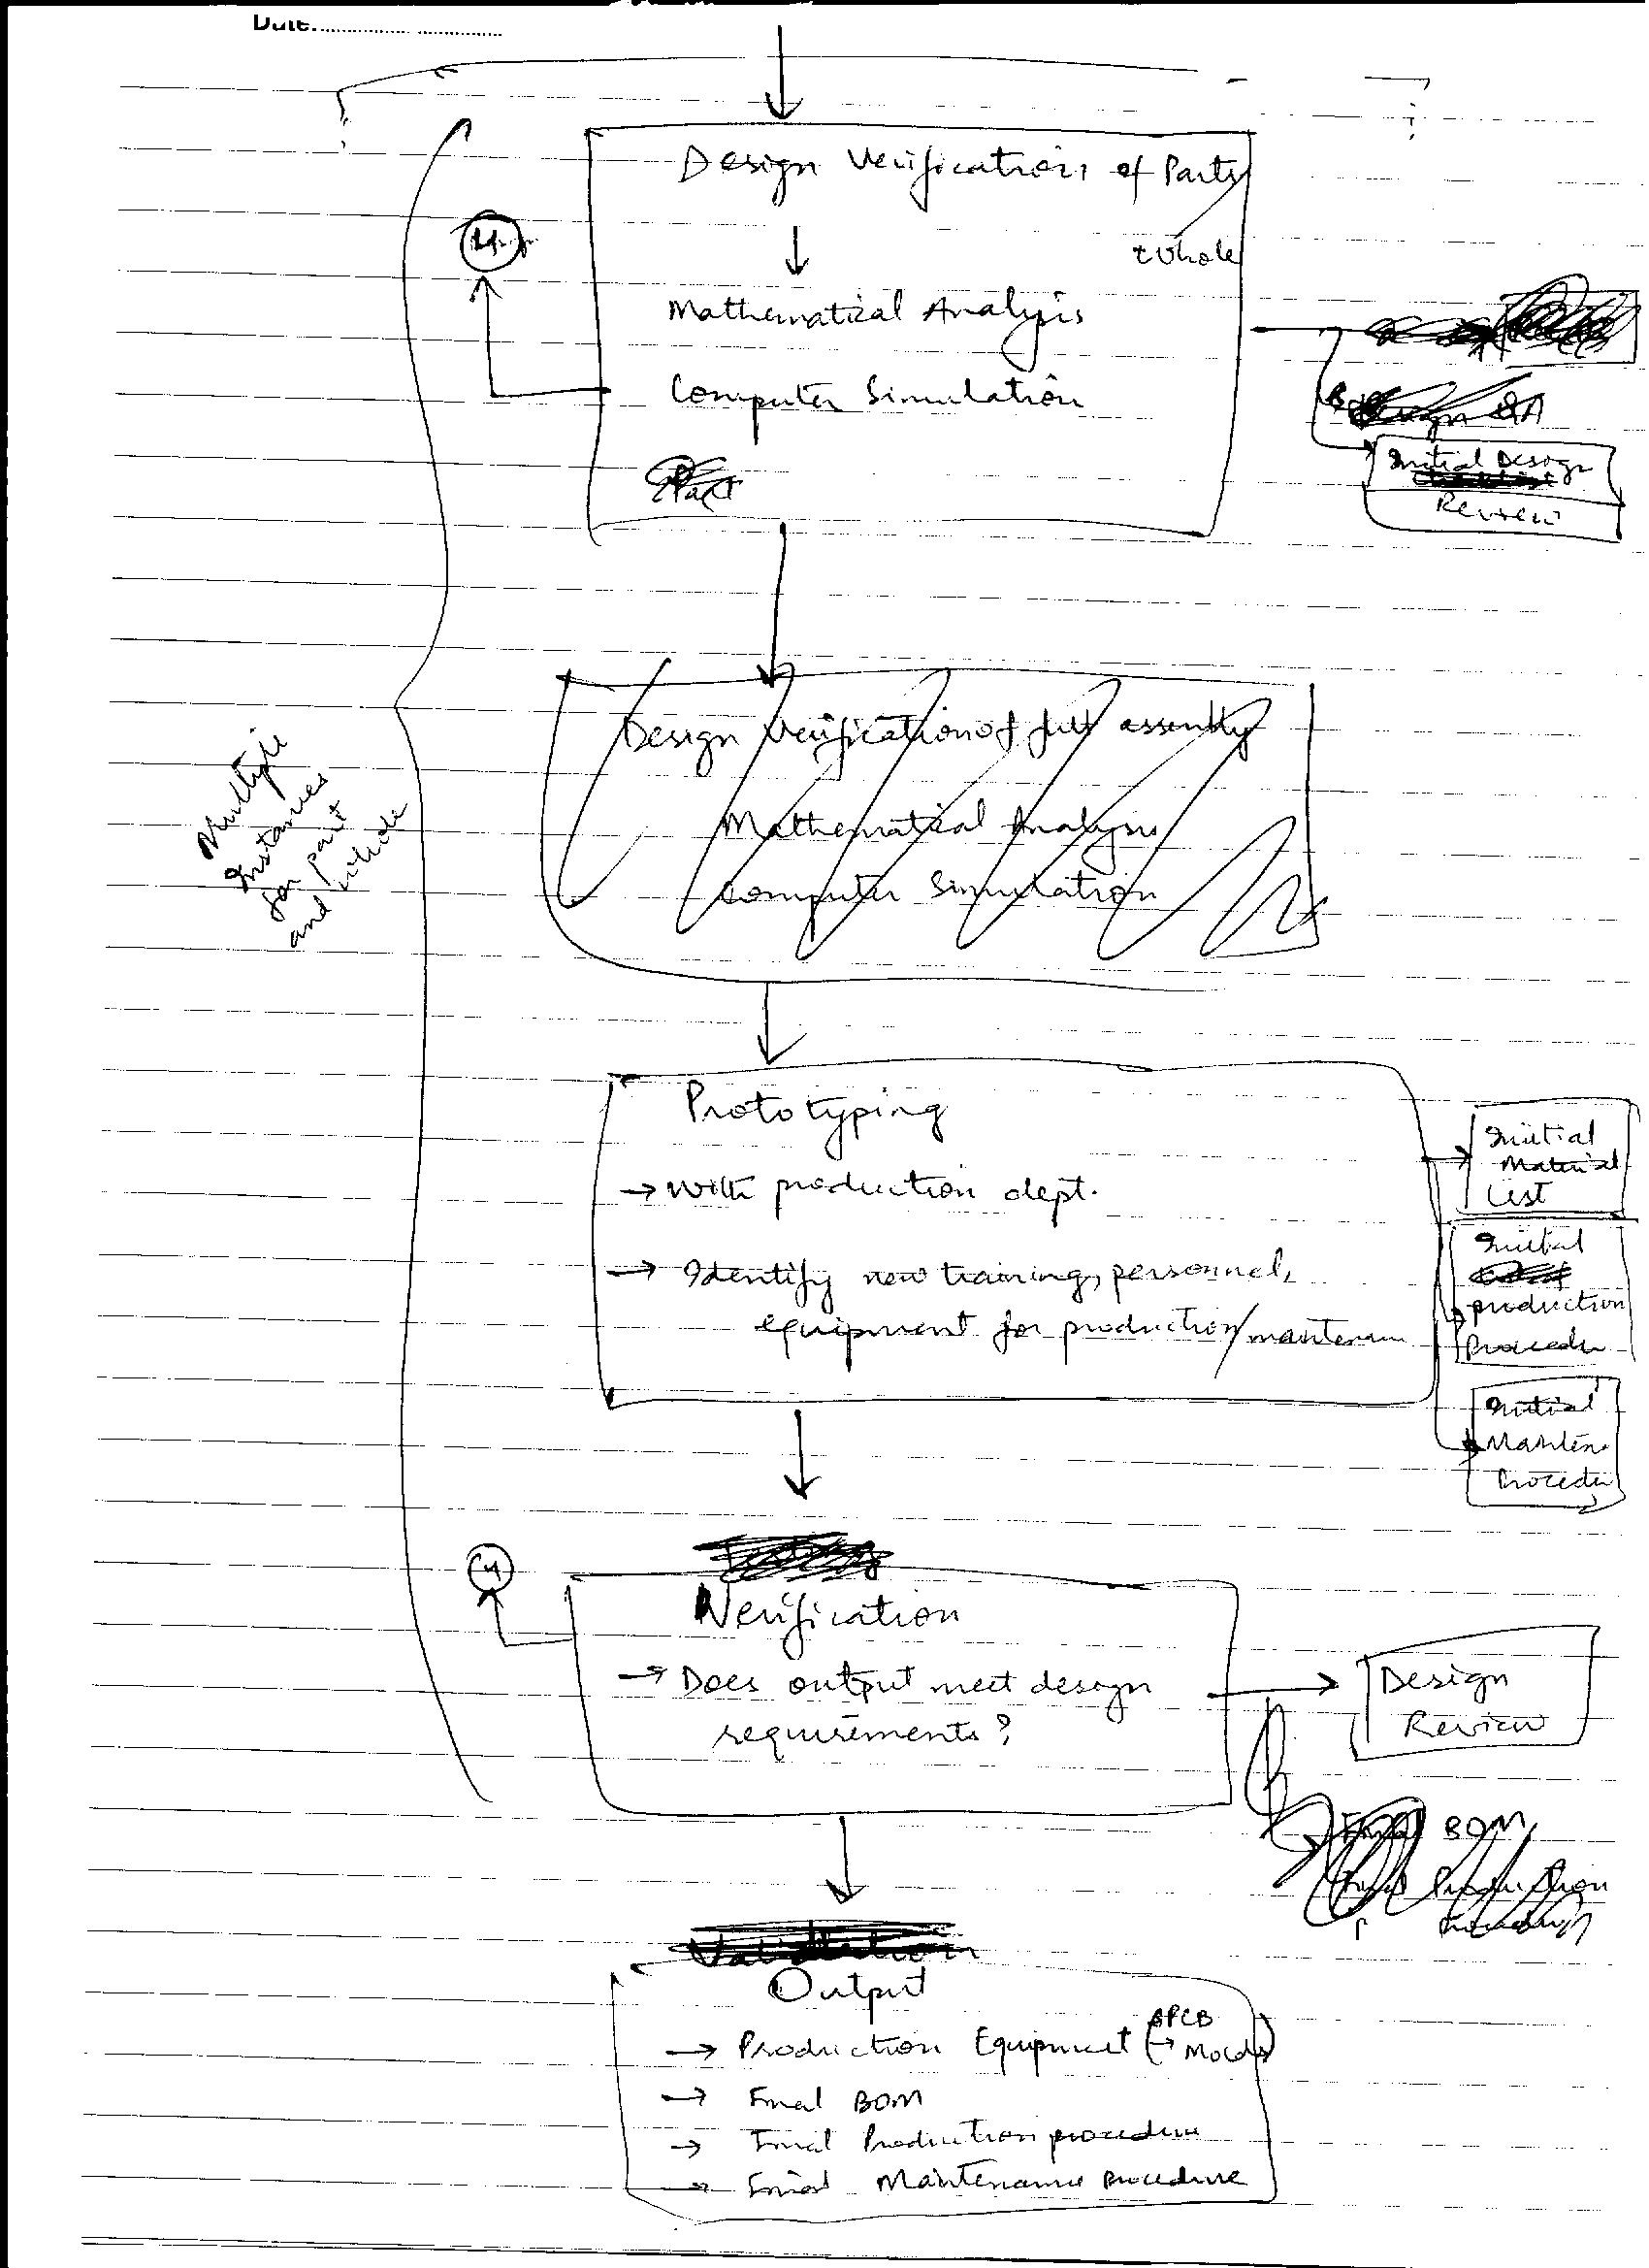 Date:
Design Verification of Parts/
whole
Mathematical Analysis
Computer Simulation
Part
Design QA
Initial Design
Review
Design Verification of full assembly
Mathematical Analysis
Computer Simulation
Multiple
Instances
for part
and whole
Prototyping
→ With production dept.
→ Identify new training, personnel,
equipment for production/maintenan
Initial
Material
List
Initial
production
Procedu
Initial
Mainten.
Procedu
Verification
→ Does output meet design
requirements?
Design
Review
Final BOM
Final Production
Validation
Output
→ Production Equipment (→ Molds)
→ Final BOM
→ Final Production procedure
→ Final Maintenance procedure